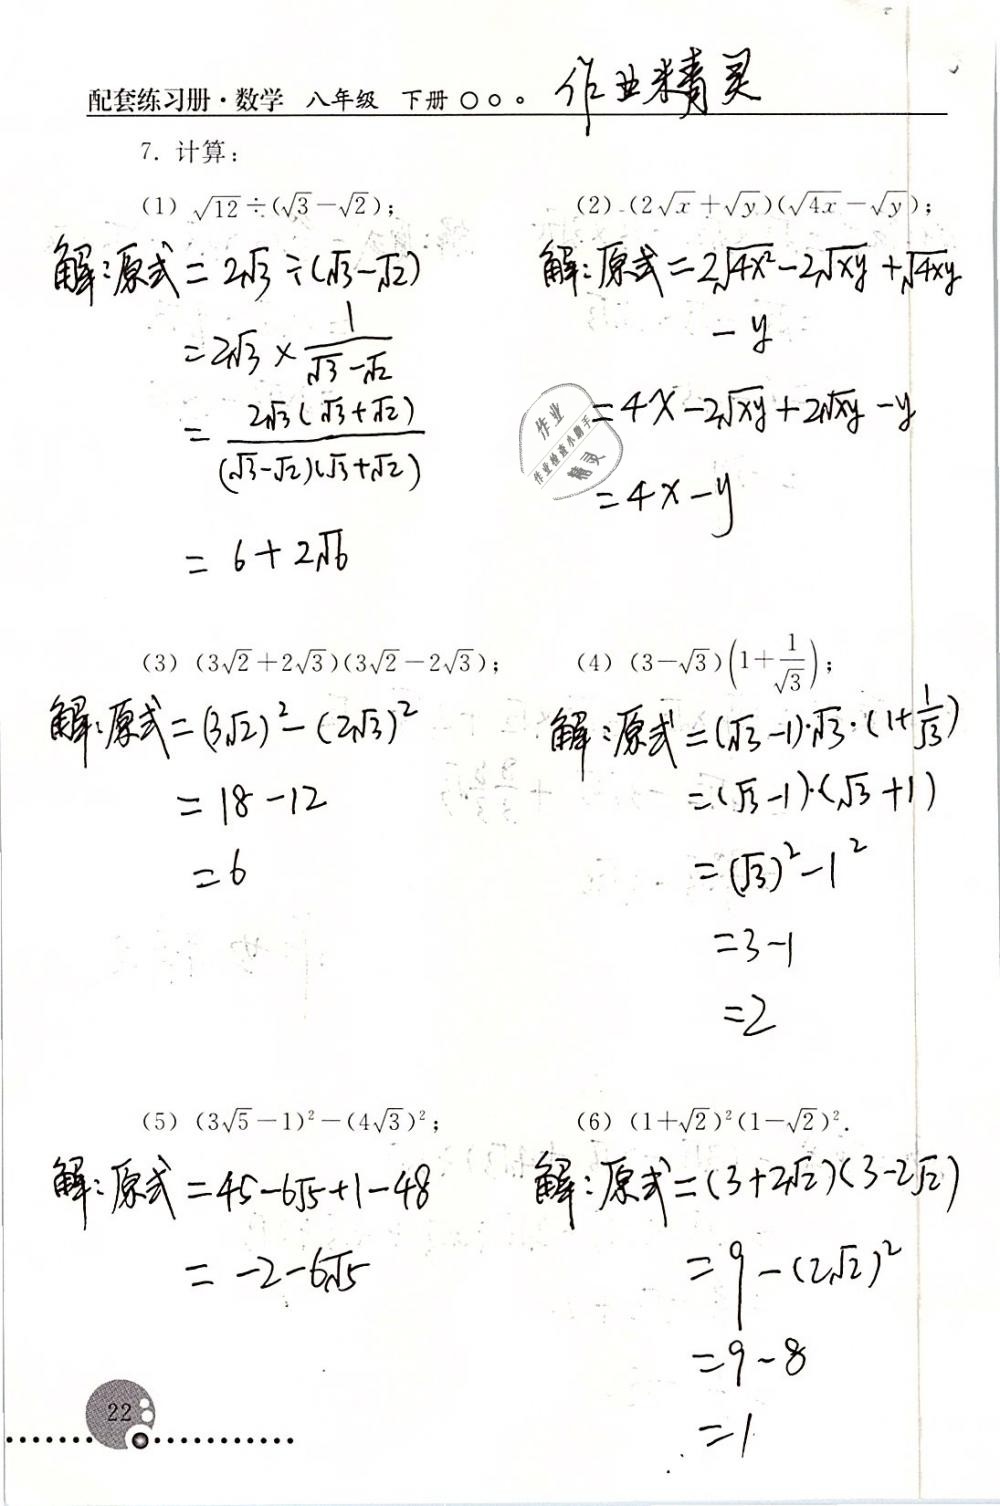 配套练习册·数学 八年级 下册 作业精灵
7. 计算:
(1) √12÷(√3-√2);
解:原式=2√3÷(√3-√2)
=2√3×1/(√3-√2)
=2√3(√3+√2)/(√3-√2)(√3+√2)
=6+2√6
(2) (2√x+√y)(√4x-√y);
解:原式=2√4x²-2√xy+√4xy
-y
=4x-2√xy+2√xy-y
=4x-y
作业
作业检查小助手
精灵
(3) (3√2+2√3)(3√2-2√3);
解:原式=(3√2)²-(2√3)²
=18-12
=6
(4) (3-√3)(1+1/√3);
解:原式=(√3-1)·√3·(1+1/√3)
=(√3-1)·(√3+1)
=(√3)²-1²
=3-1
=2
(5) (3√5-1)²-(4√3)²;
解:原式=45-6√5+1-48
=-2-6√5
(6) (1+√2)²(1-√2)².
解:原式=(3+2√2)(3-2√2)
=9-(2√2)²
=9-8
=1
22